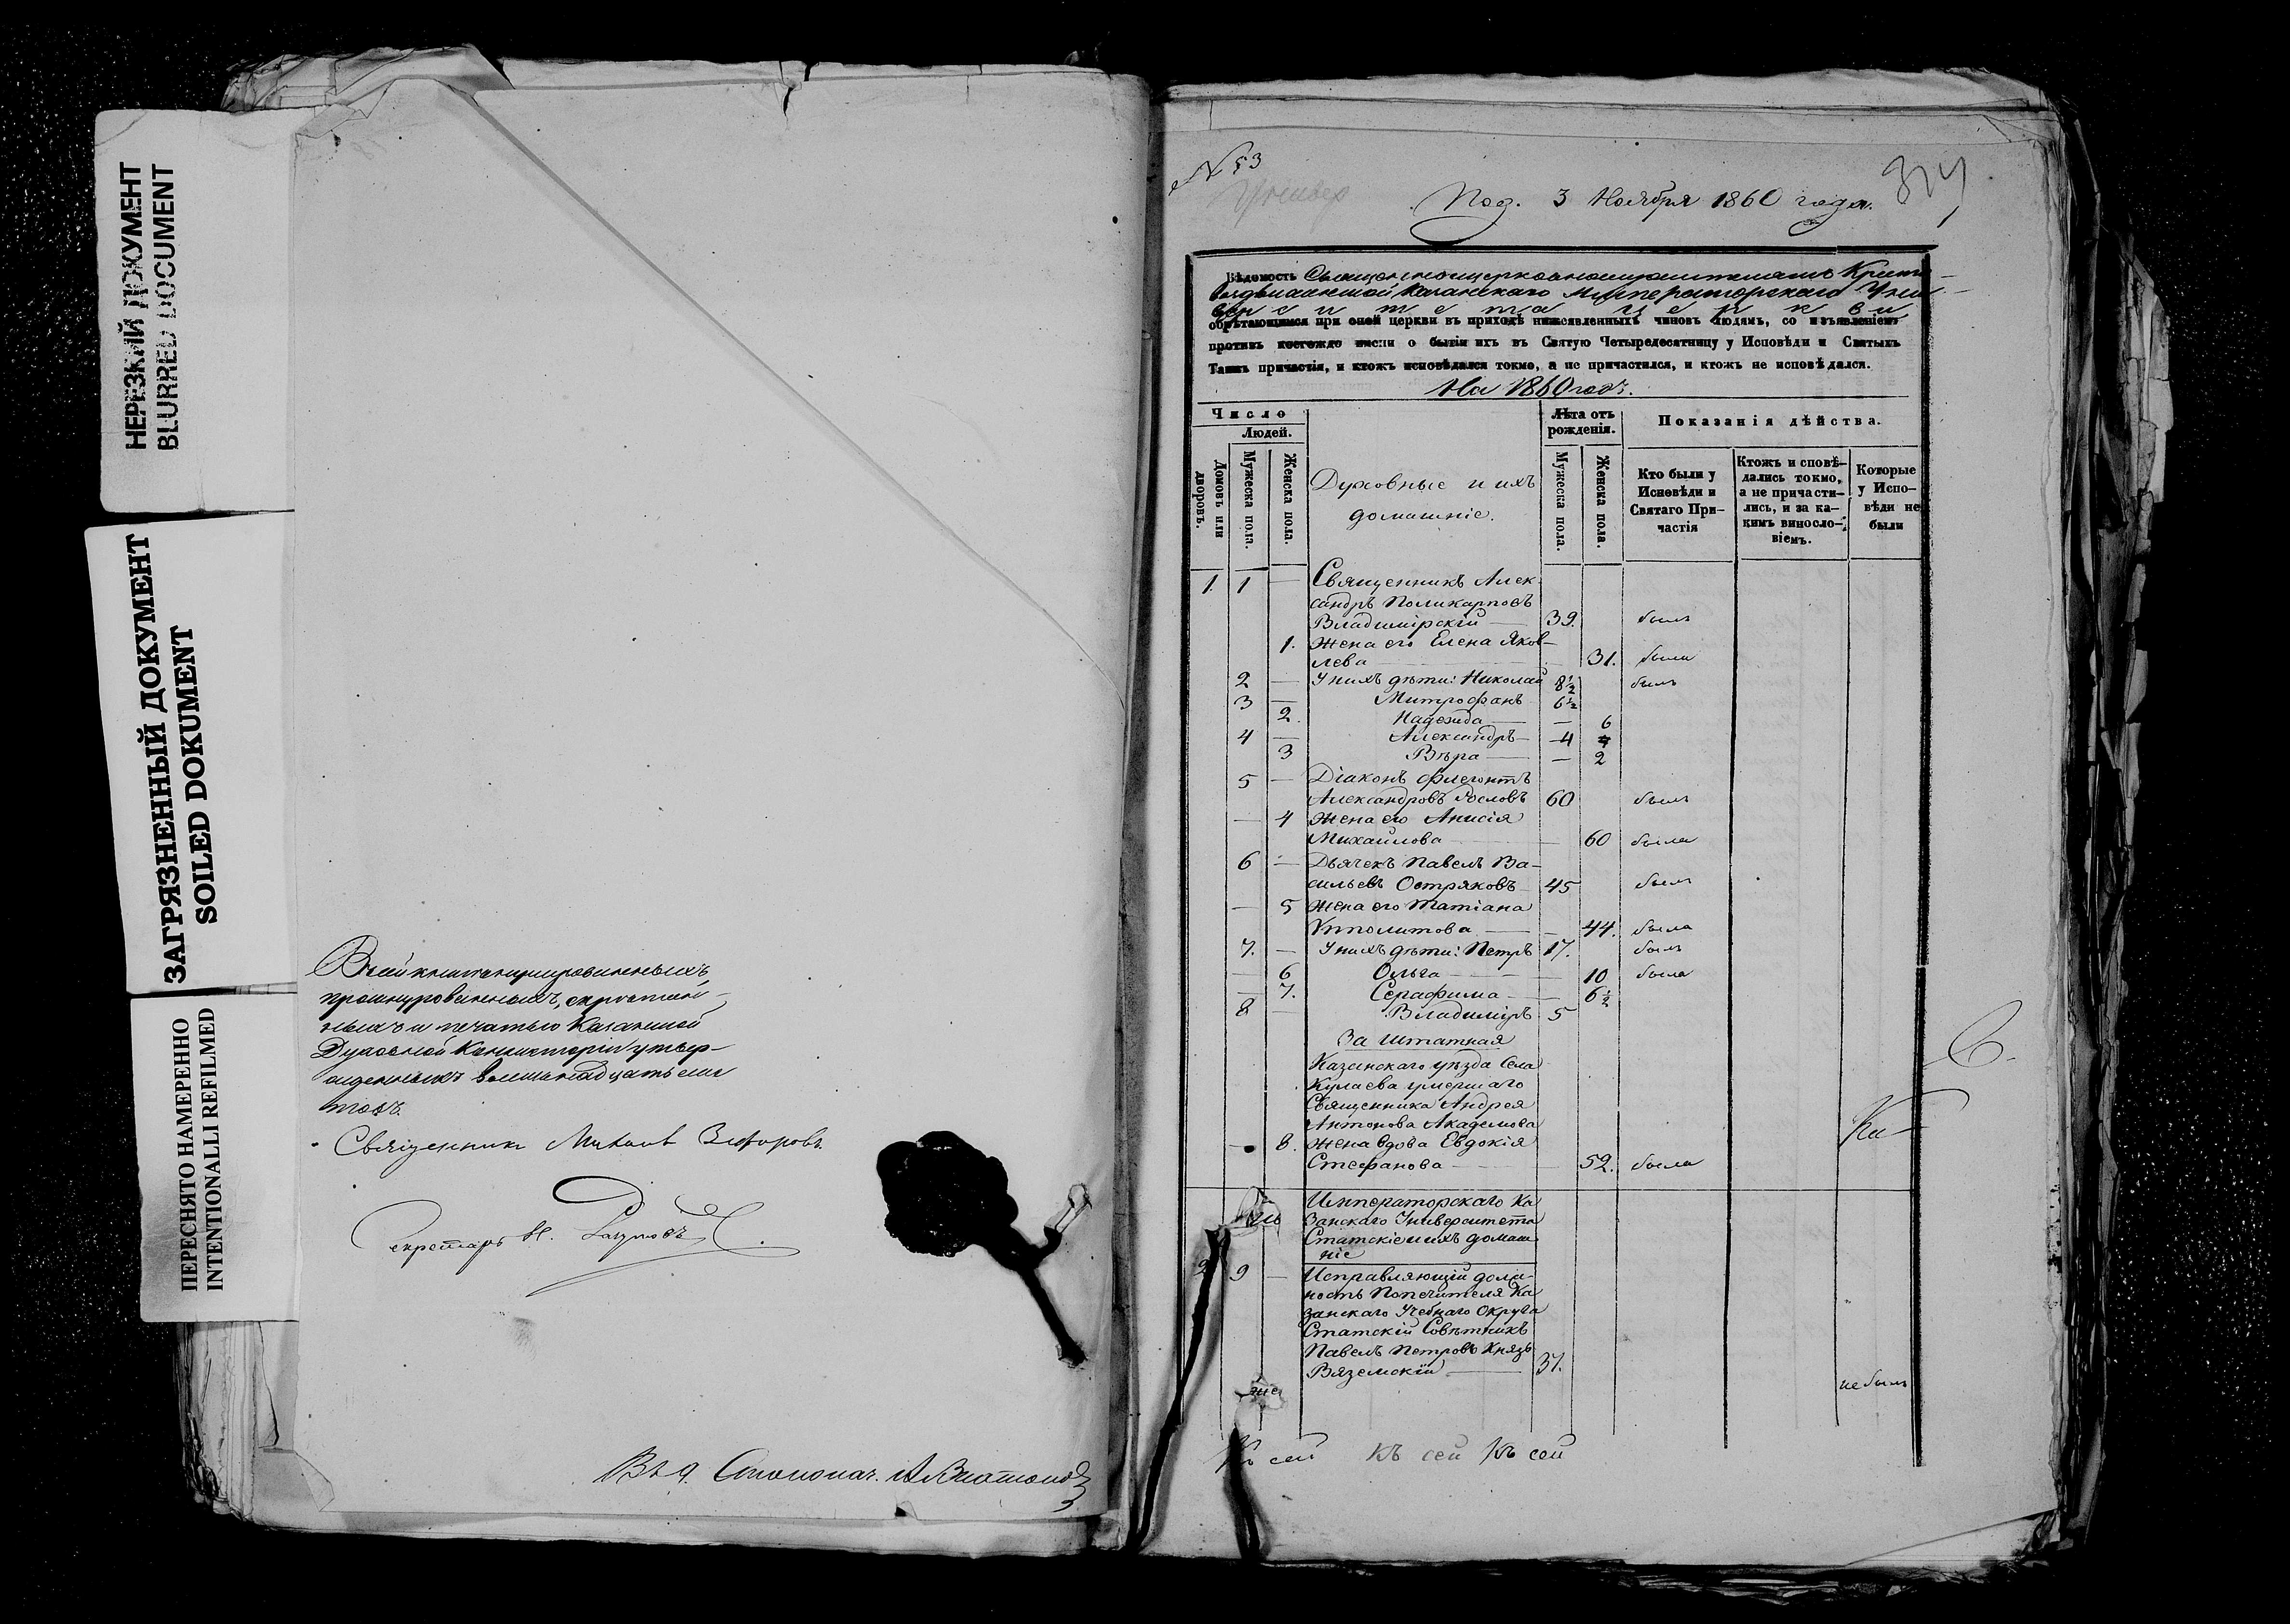 НЕРЕЗКИЙ ДОКУМЕНТ
BLURRED DOCUMENT
ЗАГРЯЗНЕННЫЙ ДОКУМЕНТ
SOILED DOKUMENT
ПЕРЕСНЯТО НАМЕРЕННО
INTENTIONALLI REFILMED
пронумерованныхъ,
прошнурованныхъ, скреплен-
ныхъ и печатью Казанской
Духовной Консисторіи утвер-
жденныхъ восемьнадцать лис
товъ.
Священникъ Михаилъ
Секретарь Н.
№ 53
Универ
Под. 3 Ноября 1860 года.
Вѣдомость Священноцерковнослужителямъ Кресто-
воздвиженской Казанскаго Императорскаго Уни-
верситета церкви
обрѣтающимся при оной церкви въ приходѣ нижеявленныхъ чиновъ людямъ, со изъявленіемъ
противъ коегождо имени о бытіи ихъ въ Святую Четыредесятницу у Исповѣди и Святыхъ
Таинъ причастія, и ктожъ исповѣдался токмо, а не причастился, и ктожъ не исповѣдался.
На 1860 годъ.
Число
Людей.
Домовъ или дворовъ.
Мужеска пола.
Женска пола.
Духовные и ихъ
домашніе.
Лѣта отъ рожденія.
Мужеска пола.
Женска пола.
Показанія дѣйства.
Кто были у Исповѣди и Святаго Причастія
Ктожъ исповѣ-
дались токмо,
а не причасти-
лись, и за ка-
кимъ винословіемъ.
Которые
у Испо-
вѣди не
были
1. 1 — Священникъ Алек-
сандръ Поликарповъ
Владимірскій — 39. былъ
1. Жена его Елена Яков-
лева 31. была
2 — У нихъ дѣти: Николай 8½ былъ
3 — Митрофанъ 6½
2. Надежда — 6
4 — Александръ — 4
3 Вѣра — 2
5 — Діаконъ Флегонтъ
Александровъ 60 былъ
— 4 Жена его Анисія
Михайлова 60 была
6 — Дьячекъ Павелъ Ва-
сильевъ Остряковъ 45 былъ
— 5 Жена его Татіана
Ипполитова — 44. была
7. — У нихъ дѣти: Петръ 17. былъ
— 6 Ольга — 10 была
— 7. Серафима — 6½
8 — Владиміръ 5
Заштатная
Казанскаго уѣзда села
Кулаева умершаго
Священника Андрея
Антонова Академова
— 8. Жена вдова Евдокія
Стефанова — 52. была
Императорскаго Ка
занскаго Университета
Статскіе и ихъ домаш
ніе
2 9 — Исправляющій долж-
ность Попечителя Ка
занскаго Учебнаго Округа
Статскій Совѣтникъ
Павелъ Петровъ Князь
Вяземскій — 37. не былъ
Къ сей Къ сей Къ сей